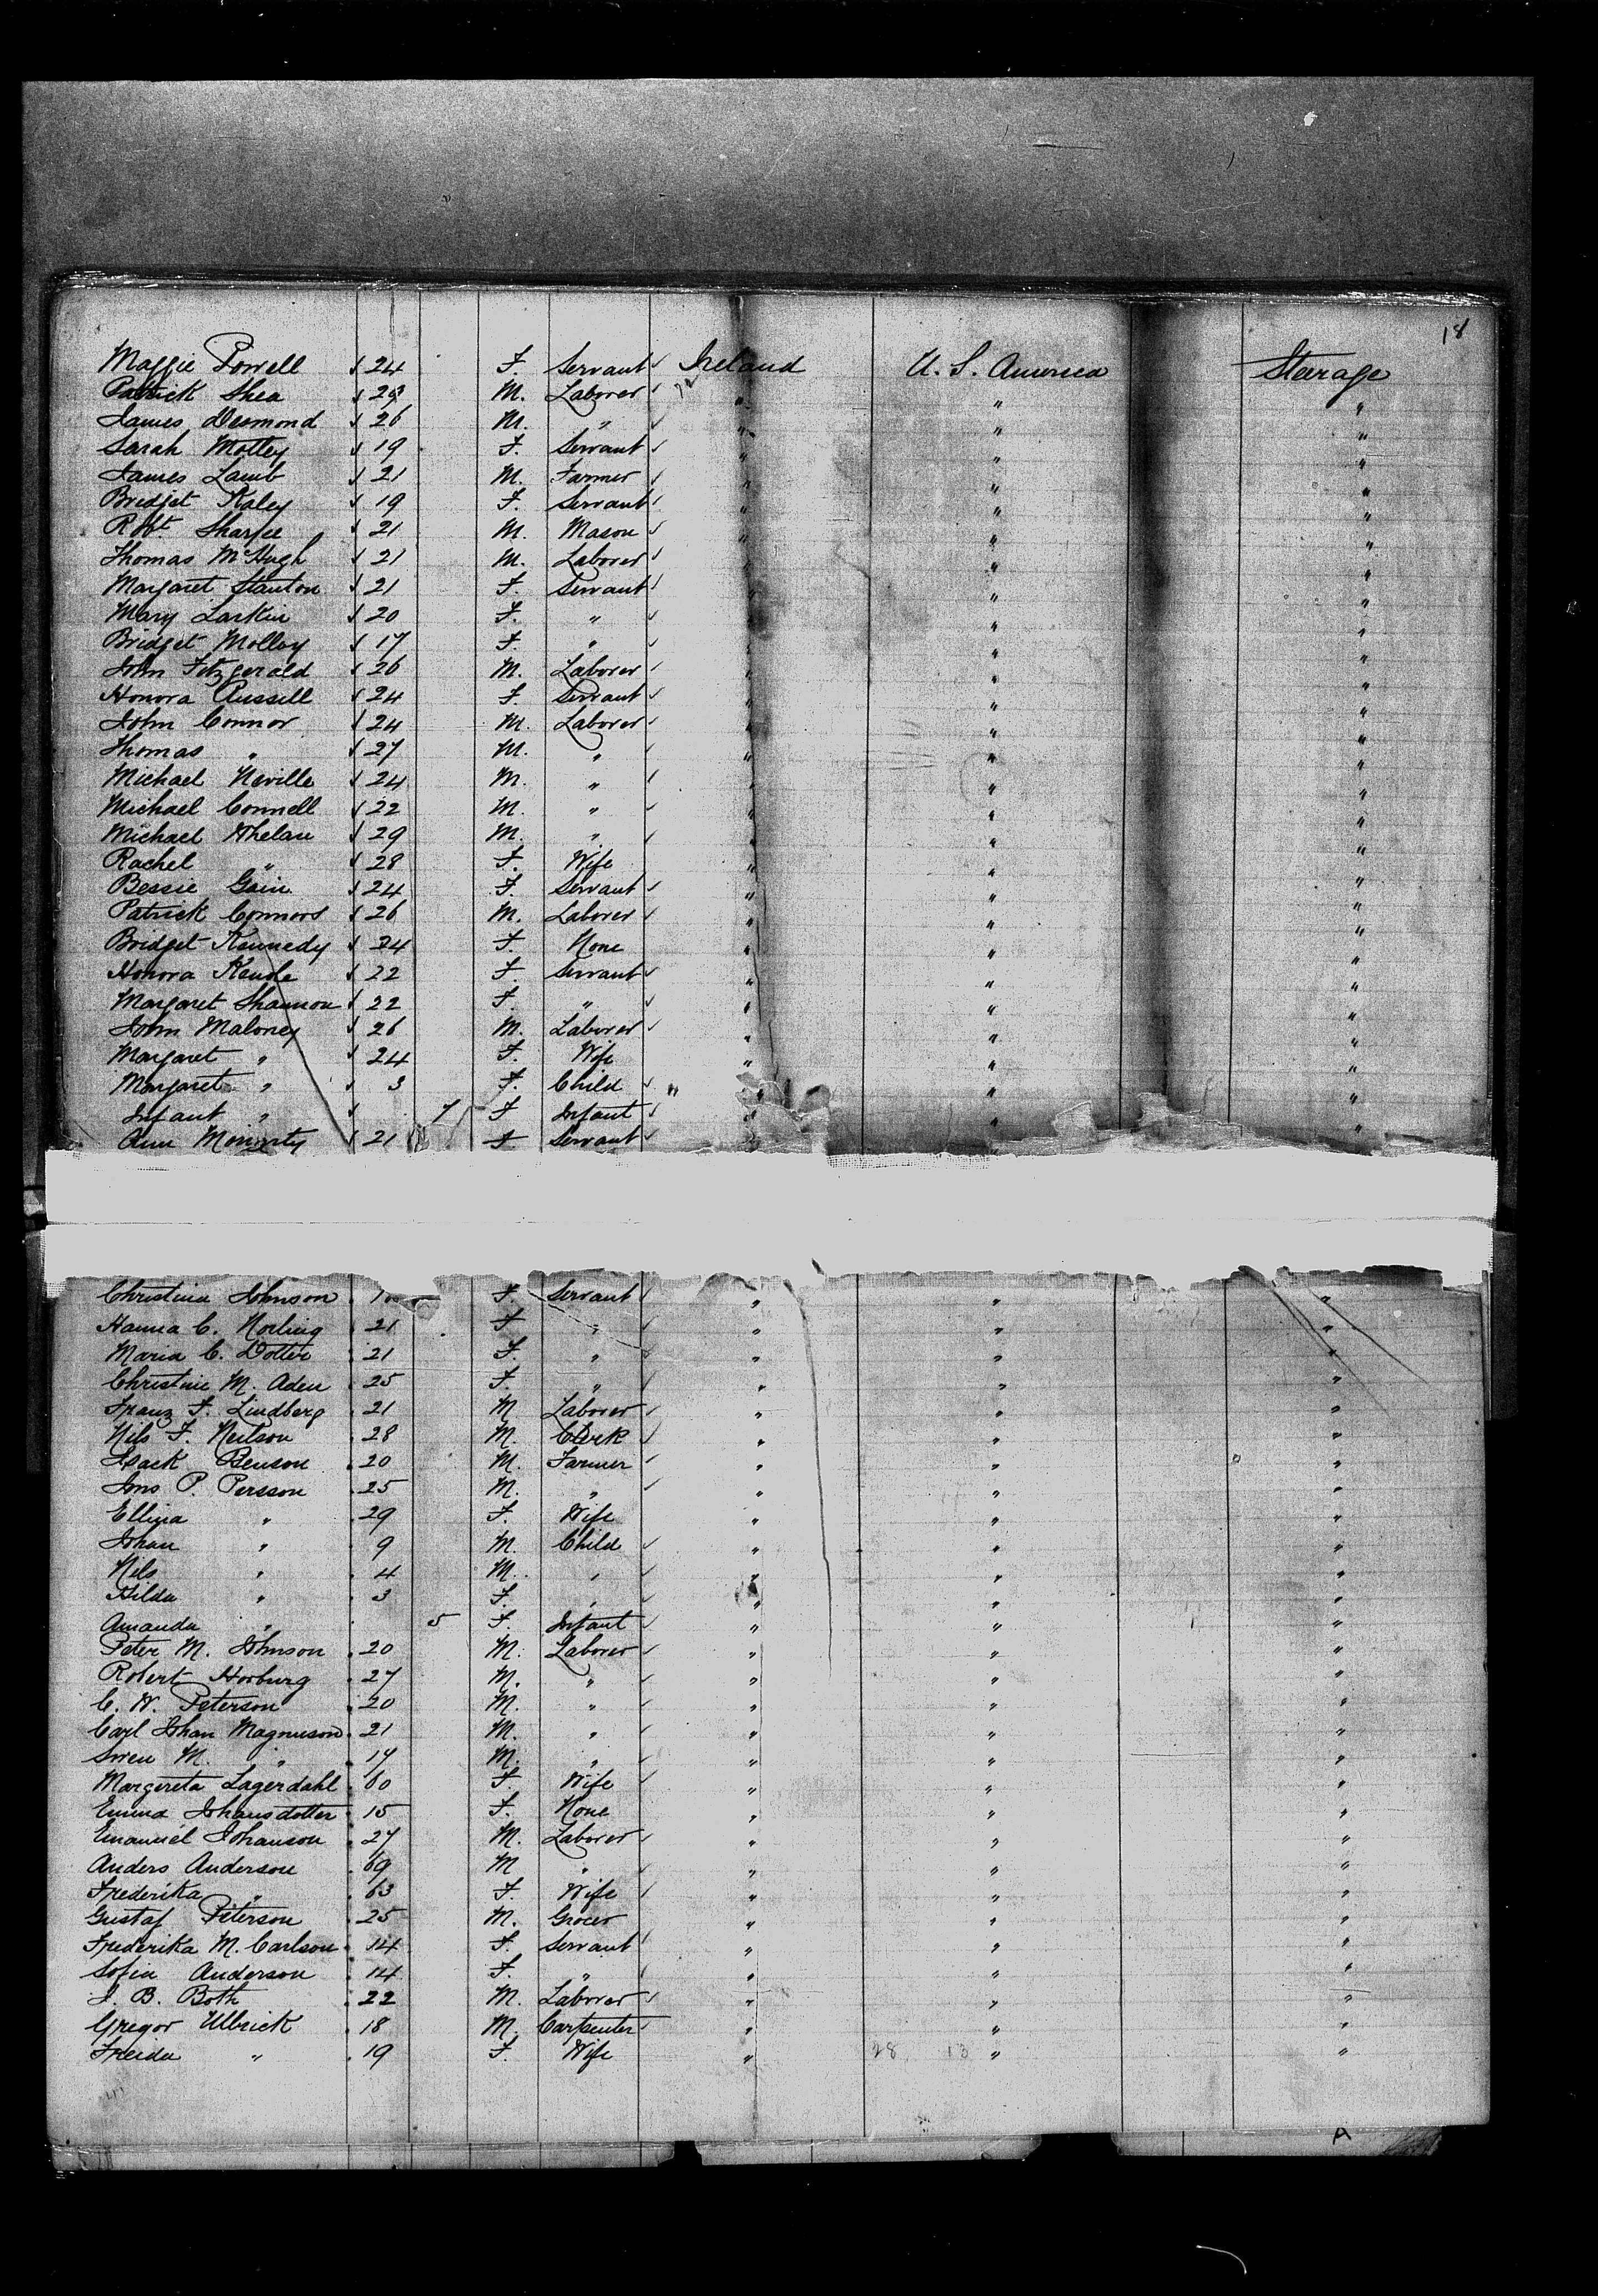 18
Maggie Powell 24 F. Servant Ireland U. S. America Steerage
Patrick Shea 29 M. Laborer " " "
James Desmond 26 M. " " " "
Sarah Motley 19 F. Servant " " "
James Lamb 21 M. Farmer " " "
Bridget Kaley 19 F. Servant " " "
Robt. Sharpe 21 M. Mason " " "
Thomas McHugh 21 M. Laborer " " "
Margaret Stanton 21 F. Servant " " "
Mary Larkin 20 F. " " " "
Bridget Molloy 17 F. " " " "
John Fitzgerald 26 M. Laborer " " "
Honora Russell 24 F. Servant " " "
John Connor 24 M. Laborer " " "
Thomas " 27 M. " " " "
Michael Neville 24 M. " " " "
Michael Connell 22 M. " " " "
Michael Whelan 29 M. " " " "
Rachel " 28 F. Wife " " "
Bessie Gain 24 F. Servant " " "
Patrick Connors 26 M. Laborer " " "
Bridget Kennedy 24 F. None " " "
Honora 22 F. Servant " " "
Margaret Shannon 22 F. " " " "
John Maloney 26 M. Laborer " " "
Margaret " 24 F. Wife " " "
Margaret " 3 F. Child " " "
Infant " 7 F. Infant " " "
Ann Moriarty 21 F. Servant "
Christina Johnson F. Servant " " "
Hanna C. Norling 21 F. " " " "
Maria C. Dotter 21 F. " " " "
Christine M. Aden 25 F. " " " "
Franz F. Lindberg 21 M Laborer " " "
Nils F. Neilson 28 M. Clerk " " "
Isack Benson 20 M. Farmer " " "
Jns P. Persson 25 M. " " " "
Ellina " 29 F. Wife " " "
Johan " 9 M. Child " " "
Nils " 4 M. " " " "
Hilda " 3 F. " " " "
Amanda " 5 F. Infant " " "
Peter M. Johnson 20 M. Laborer " " "
Robert Horburg 27 M. " " " "
C. W. Peterson 20 M. " " " "
Carl Johan Magnuson 21 M. " " " "
Swen M. " 17 M. " " " "
Margereta Lagerdahl 60 F. Wife " " "
Emma Johansdotter 15 F. None " " "
Emanuel Johanson 27 M. Laborer " " "
Anders Anderson 69 M " " " "
Frederika " 63 F. Wife " " "
Gustaf Peterson 25 M. Grocer " " "
Frederika M. Carlson 14 F. Servant " " "
Sofia Anderson 14 F. " " " "
J. B. Both 22 M. Laborer " " "
Gregor Ulbrick 18 M. Carpenter " " "
Freida " 19 F. Wife " 28 13 " "